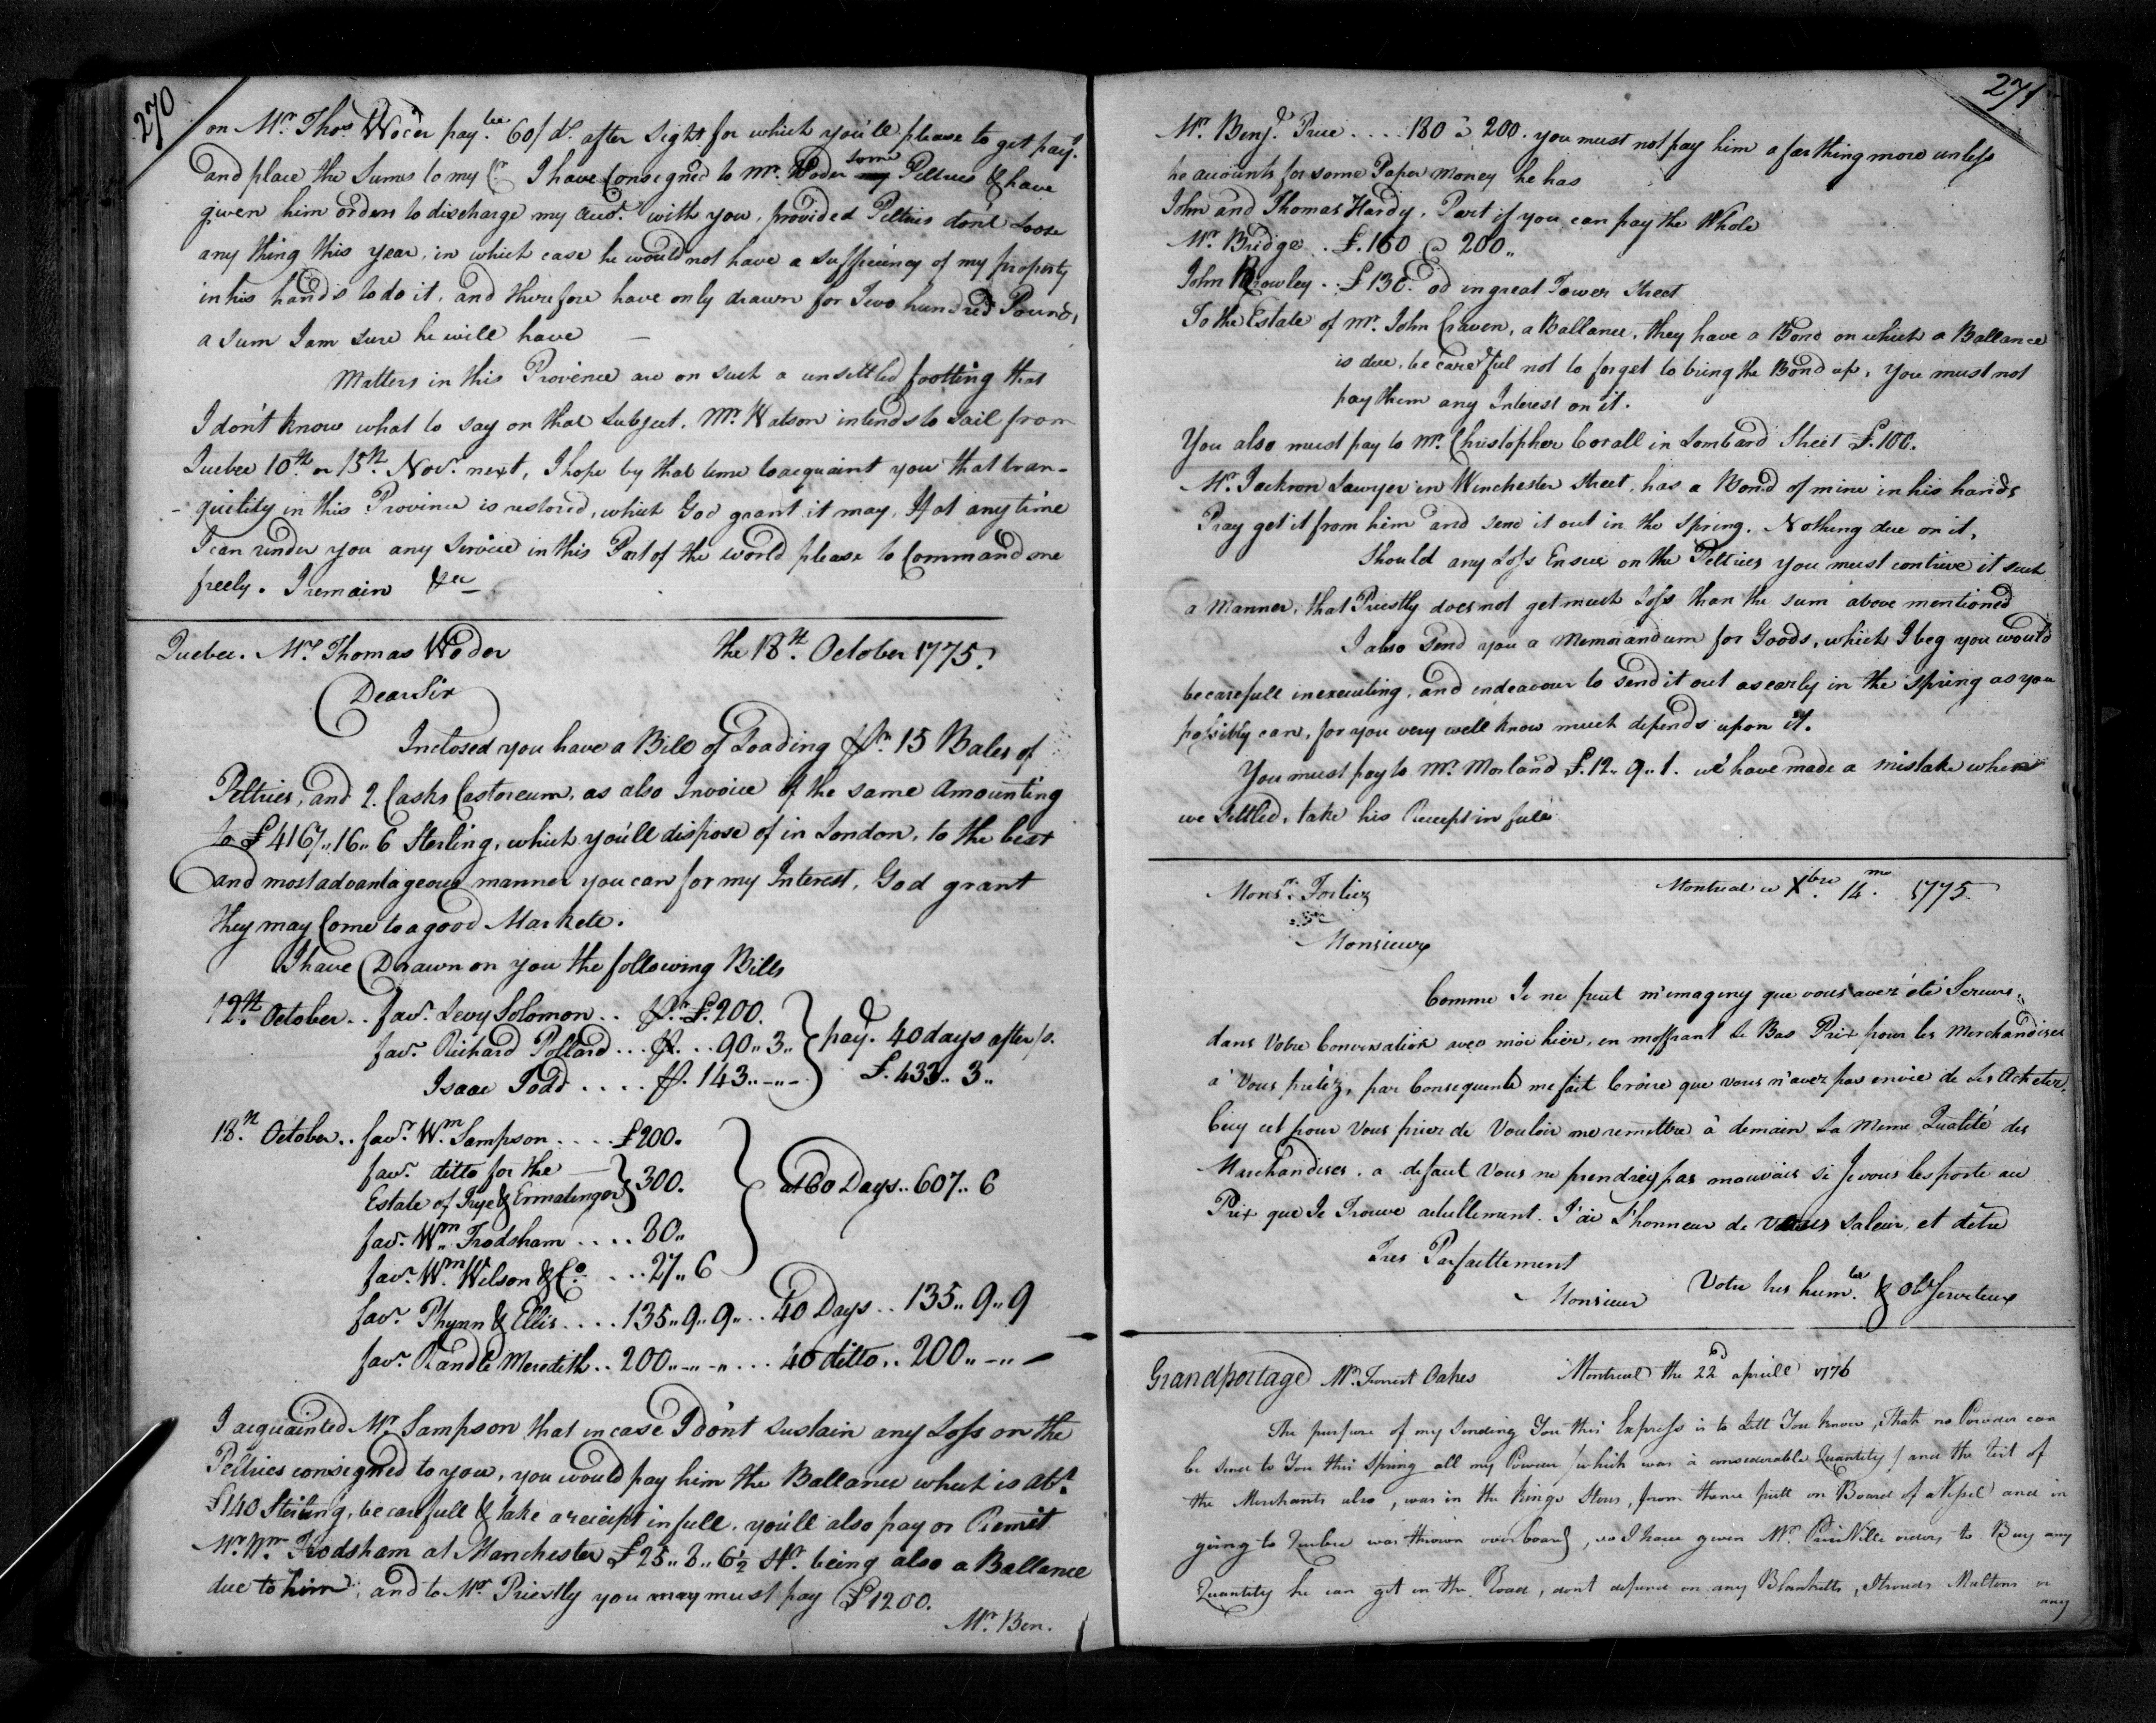 270
on Mr. Thos. Woder pay.ble 60/ds. after Sight for which you'll please to get pay.t
and place the Sums to my Cr. I have Consigned to Mr. Woder some Peltries & have
given him orders to discharge my Acct. with you, provided Peltries don't Loose
any thing this Year, in which case he would not have a sufficiency of my property
in his hands to do it, and therefore have only drawn for Two hundred Pounds,
a Sum I am sure he will have
Matters in this Province are on such a unsettled footting that
I don't know what to say on that Subject. Mr. Watson intends to Sail from
Quebec 10th or 15th. Nov.r next, I hope by that time to acquaint you that tran-
-quility in this Province is restored, which God grant it may, If at any time
I can render you any Service in this Part of the world please to Command me
freely. I remain &ca
Quebec. Mr. Thomas Woder the 18th. October 1775.
Dear Sir
Inclosed you have a Bill of Loading for 15 Bales of
Peltries, and 2. Casks Castoreum, as also Invoice of the same Amounting
to £4167,,16,,6 Sterling, which you'll dispose of in London, to the best
and most advantageous manner you can for my Interest, God grant
they may Come to a good Markett.
I have Drawn on you the following Bills
12th. October.. fav.r Levy Solomon.. £.200.
fav.r Richard Pollard... 90,,3,, pay.e 40 days after/s.
Isaac Todd.... 143,,-,,- £.433,,3,,
18.th October.. fav.r Wm. Sampson.... £200.
fav.r ditto for the
Estate of Trye & Ermatinger 300. at 60 Days.. 607,,6
fav.r Wm. Frodsham.... 80,,
fav.r Wm. Wilson & Co.... 27,,6
fav.r Phynn & Ellis.... 135,,9,,9... 40 Days.. 135,,9,,9
fav.r Randle Meredith.. 200,,-,,-... 40 ditto.. 200,,-,,-
I acquainted Mr. Sampson that in case I don't Sustain any Loss on the
Peltries consigned to you, you would pay him the Ballance which is abt.
£140 Sterling, be carefull & take a receipt in full. you'll also pay or Remit
Mr. Wm. Frodsham at Manchester £25,,8,,6½ Str. being also a Ballance
due to him, and to Mr. Priestly you may must pay £1200.
Mr. Ben.
271
Mr. Benj.n Price.... 180 à 200. you must not pay him a farthing more unless
he accounts for some Paper Money he has
John and Thomas Hardy. Part if you can pay the Whole
Mr. Bridge.. £.160 @ 200,,
John Rowley.. £130. od in great Tower Street
To the Estate of Mr. John Craven, a Ballance, they have a Bond on which a Ballance
is due, be carefful not to forget to bring the Bond up, You must not
pay them any Interest on it.
You also must pay to Mr. Christopher Corall in Lombard Street £.100.
Mr. Jackson Lawyer in Winchester Street, has a Bond of mine in his hands
Pray get it from him and send it out in the Spring. Nothing due on it,
Should any Loss Ensue on the Peltries you must contrive it such
a Manner, that Priestly does not get much Less than the sum above mentioned
I also send you a Memorandum for Goods, which I beg you would
be carefull in executing, and endeavour to send it out as early in the Spring as you
possibly can, for you very well know much depends upon it.
You must pay to Mr. Morland £.12,,9,,1. we have made a mistake when
we Settled, take his Receipt in full
Mons.r Fortiez Montreal ce Xbre 14.me 1775.
Monsieur
Comme Je ne peut m'imaginy que vous avez été Serieus,
dans Votre Conversation avec moi hier, en m'offrant Le Bas Prix pour les Merchandises
a' Vous pretéz, par Consequente me fait Croire que vous n'avez pas envie de Les Acheter.
Cecy est pour Vous prier de Vouloir me remettre à demain La Meme Qualité des
Marchandises. a defaut Vous ne prendrez pas mauvais si Je vous les porte au
Prix que Je Trouve actullement. J'ai L'honneur de Vous Saluer, et d'etre
Tres Parfaittement
Monsieur Votre tres hum.ble & Ob.t Serviteur
Grandportage Mr. Forrest Oakes Montreal the 22d aprill 1776
The purpose of my Sending You this Express is to Lett You know, That no Powder can
be send to You this Spring all my Powder (which was a considerable Quantity) and the rest of
the Merchants also, was in the Kings Stores, from thence putt on Board of a Vessel and in
going to Quebec was thrown over board, so I have given Mr. orders, to Buy any
Quantity he can get on the Road, dont depend on any Blanketts, Strouds Maltons or
any